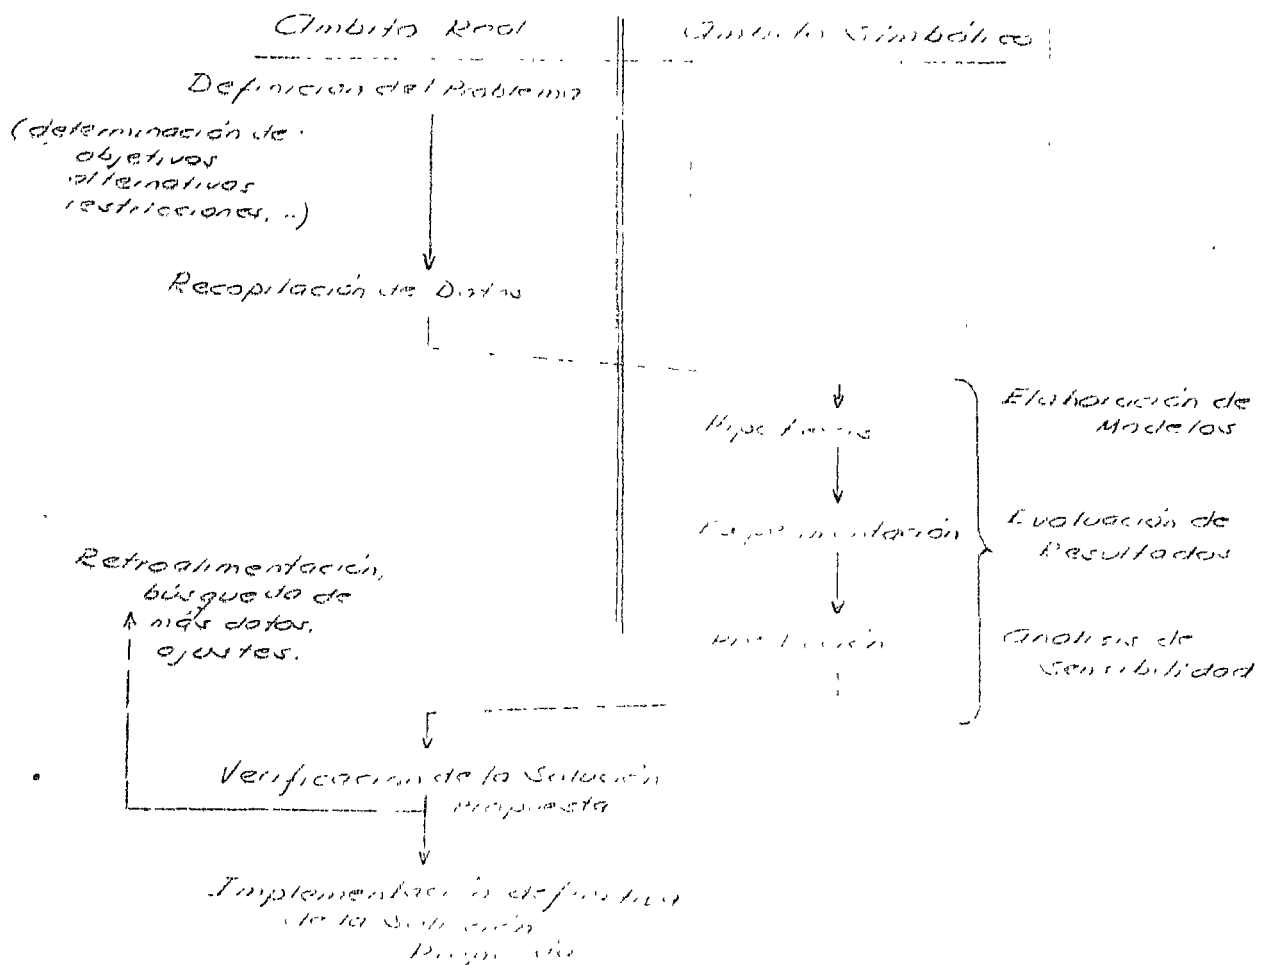 Ambito Real
Ambito Simbólico
Definición del Problema
(determinación de
objetivos
alternativas
restricciones, ..)
Recopilación de Datos
Hipótesis
Experimentación
Elaboración de
Modelos
Evaluación de
Resultados
Análisis de
Sensibilidad
Retroalimentación,
búsqueda de
más datos,
ajustes.
Verificación de la Solución
Propuesta
Implementación definitiva
de la Solución